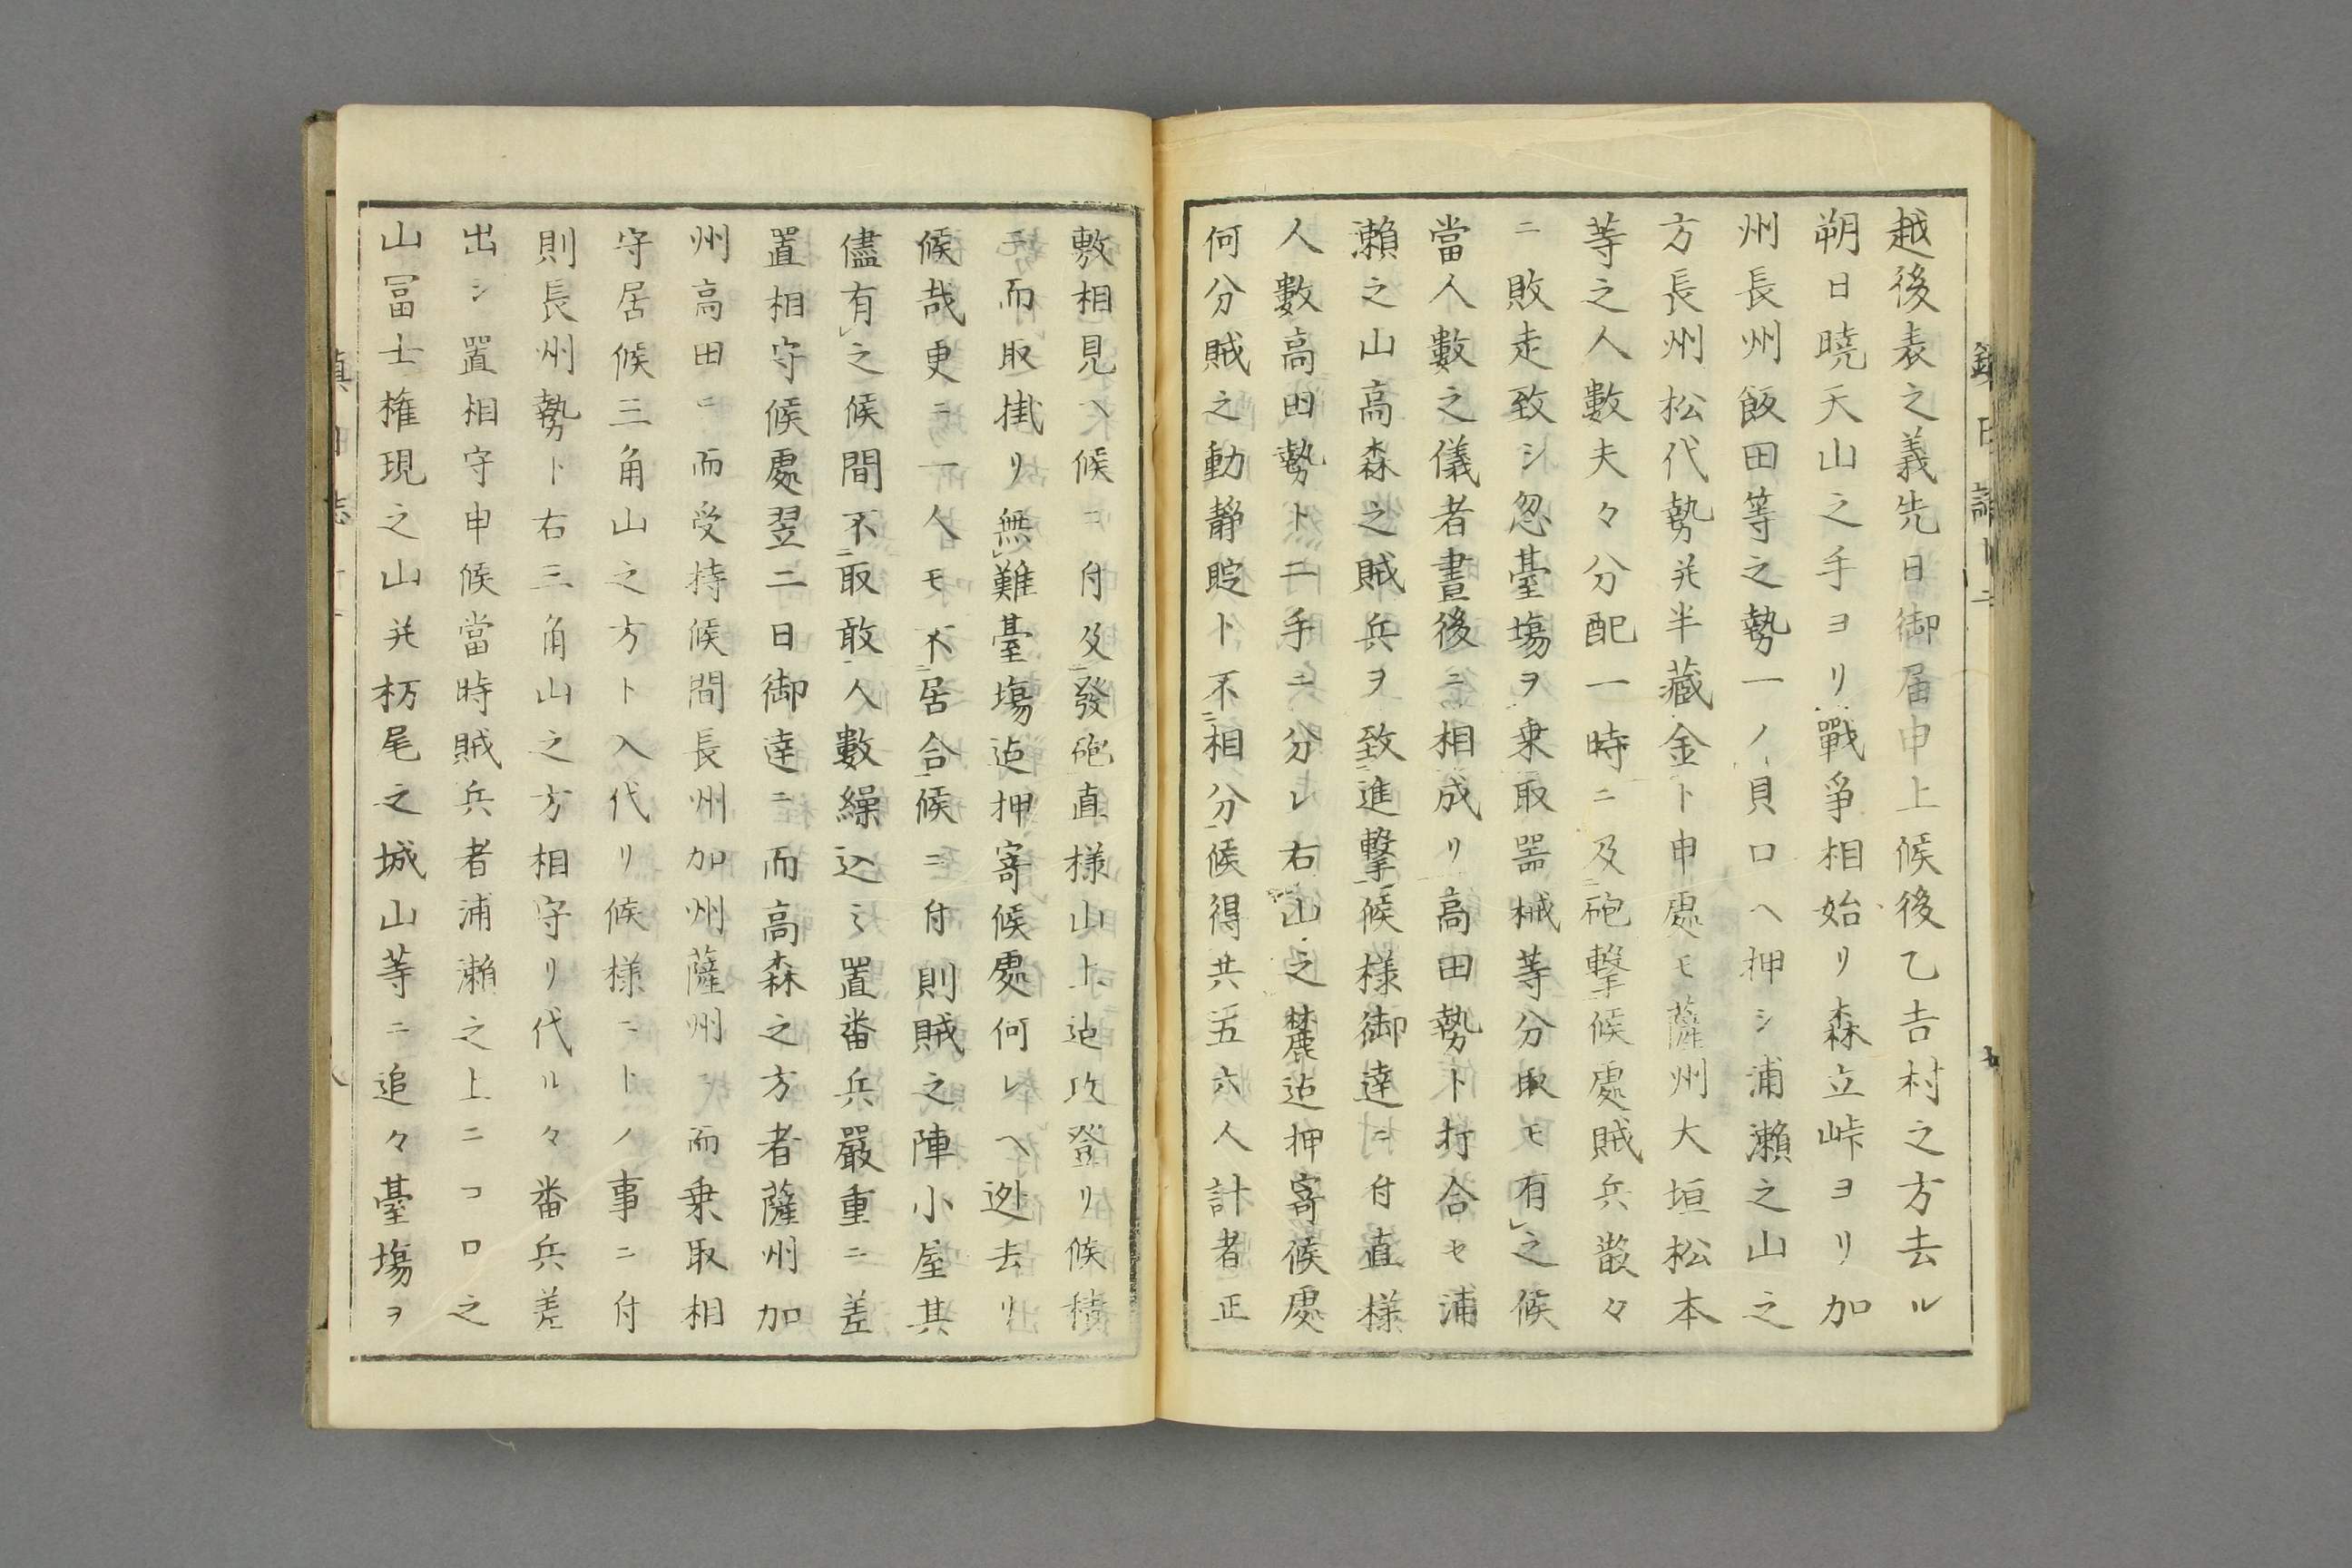 越後表之義先日御届申上候後乙吉村之方去ル
朔日曉天山之手ヨリ戰爭相始リ森立峠ヨリ加
州長州飯田等之勢一ノ貝口ヘ押シ浦瀬之山之
方長州松代勢并半藏金ト申處モ薩州大垣松本
等之人數夫々分配一時ニ及砲撃候處賊兵散々
ニ敗走致シ忽臺塲ヲ乗取器械等分取モ有之候
當人數之儀者晝後ニ相成リ高田勢ト打合セ浦
瀬之山高森之賊兵ヲ致進撃候様御達ニ付直様
人數高田勢ト二手ニ分レ右山之麓迠押寄候處
何分賊之動静聢ト不相分候得共五六人計者正
敷相見ヘ候ニ付及發砲直様山上迠攻登リ候積
ニ而取掛リ無難臺塲迠押寄候處何レヘ迯去リ
候哉更ニ一人モ不居合候ニ付則賊之陣小屋其
儘有之候間不取敢人數繰込ミ置畨兵嚴重ニ差
置相守候處翌二日御達ニ而高森之方者薩州加
州高田ニ而受持候間長州加州薩州ニ而乗取相
守居候三角山之方ト入代リ候様ニトノ事ニ付
則長州勢ト右三角山之方相守リ代ル々畨兵差
出シ置相守申候當時賊兵者浦瀬之上ニコロ之
山冨士権現之山并栃尾之城山等ニ追々臺塲ヲ